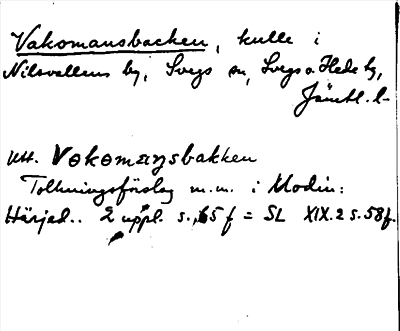 Vakomansbacken, kulle i
Nilsvallens by, Svegs sn, Svegs o. Hede tg,
Jämtl. l-
utt. Vokomaŋsbakken
Tolkningsförslag m.m. i Modin:
Härjed.. 2 uppl. s. 65 f = SL XIX.2 s. 58 f.